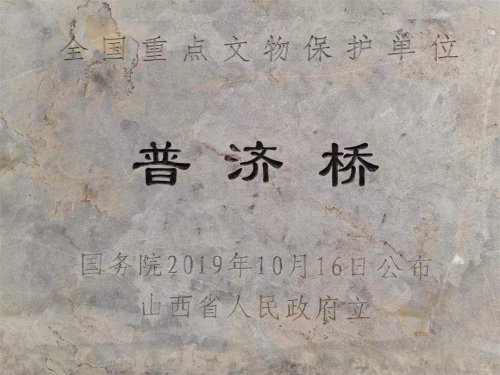 全国重点文物保护单位
普济桥
国务院2019年10月16日公布
山西省人民政府立